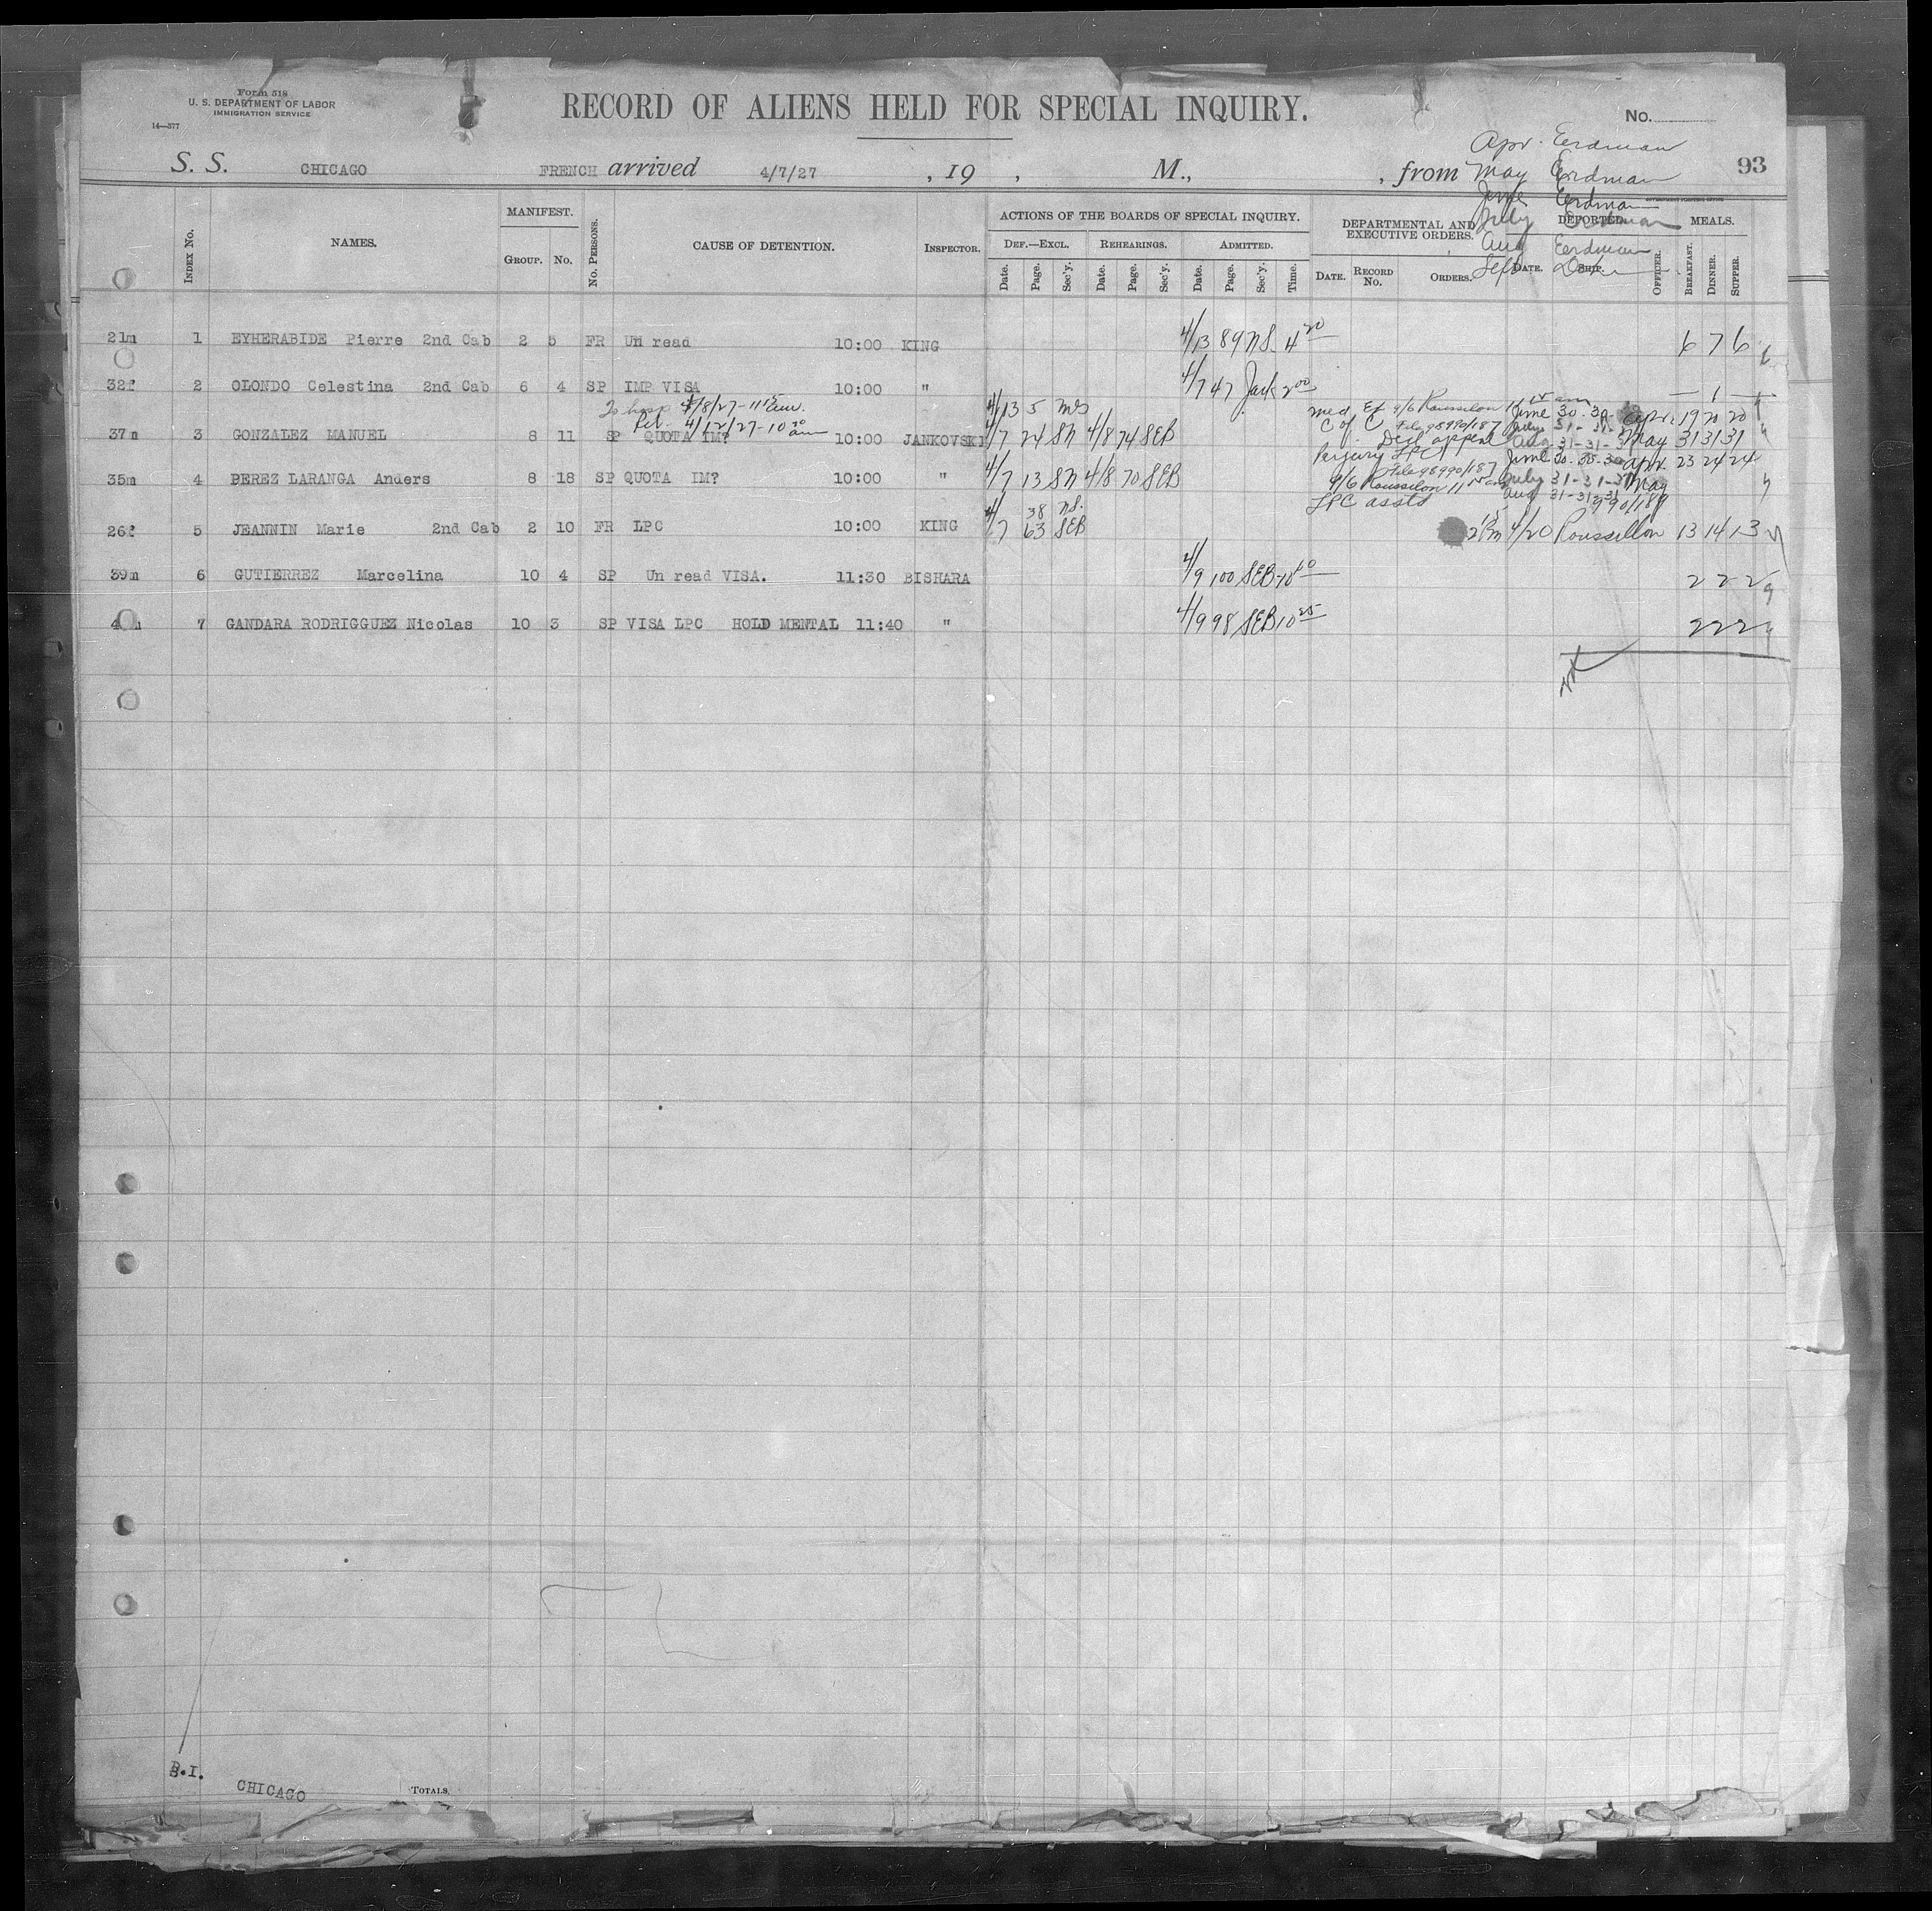 Form 518
U. S. DEPARTMENT OF LABOR
IMMIGRATION SERVICE
14—377
RECORD OF ALIENS HELD FOR SPECIAL INQUIRY.
No.
Apr. Eerdman
S. S. CHICAGO FRENCH arrived 4/7/27 , 19 , M., , from May Eerdman 93
June Eerdman
July Eerdman
Aug Eerdman
Sept
INDEX No. NAMES. MANIFEST. GROUP. No. No. PERSONS. CAUSE OF DETENTION. INSPECTOR.
ACTIONS OF THE BOARDS OF SPECIAL INQUIRY.
DEF.—EXCL. REHEARINGS. ADMITTED.
Date. Page. Sec'y. Date. Page. Sec'y. Date. Page. Sec'y. Time.
DEPARTMENTAL AND EXECUTIVE ORDERS.
DATE. RECORD No. ORDERS.
DEPORTED.
DATE. SHIP. OFFICER.
MEALS.
BREAKFAST. DINNER. SUPPER.
21m 1 EYHERABIDE Pierre 2nd Cab 2 5 FR Un read 10:00 KING 4/13 89 NS. 4 20 6 7 6
32f 2 OLONDO Celestina 2nd Cab 6 4 SP IMP VISA 10:00 " 4/7 47 Jack 2 00 — 1 —
To hosp 4/8/27-11 15 am. 4/13 5 Med Ef 9/6 Rousselon 11 15 am
Rel. 4/12/27-10 20 am C of C File 98990/187 June 30-30- July 31-31- Apr. 19 20 20
37m 3 GONZALEZ MANUEL 8 11 SP QUOTA IM? 10:00 JANKOVSKI 4/7 24 SN 4/8 74 SEB Decl appeal Aug 31-31-3 May 31 31 31
Perjury LPC June 30-30-30 Apr. 23 24 24
35m 4 PEREZ LARANGA Anders 8 18 SP QUOTA IM? 10:00 " 4/7 13 SN 4/8 70 SEB File 98990/187 July 31-31-31 May
9/6 Rousselon 11 15 am Aug 31-31-31
LPC assts 990/189
38 NS.
26f 5 JEANNIN Marie 2nd Cab 2 10 FR LPC 10:00 KING 4/7 63 SEB 2 15 Pm 4/20 Roussillon 13 14 13
39m 6 GUTIERREZ Marcelina 10 4 SP Un read VISA. 11:30 BISHARA 4/9 100 SEB 10 40 2 2 2
7 GANDARA RODRIGGUEZ Nicolas 10 3 SP VISA LPC HOLD MENTAL 11:40 " 4/9 98 SEB 10 25 2 2 2
B.I.
CHICAGO TOTALS.